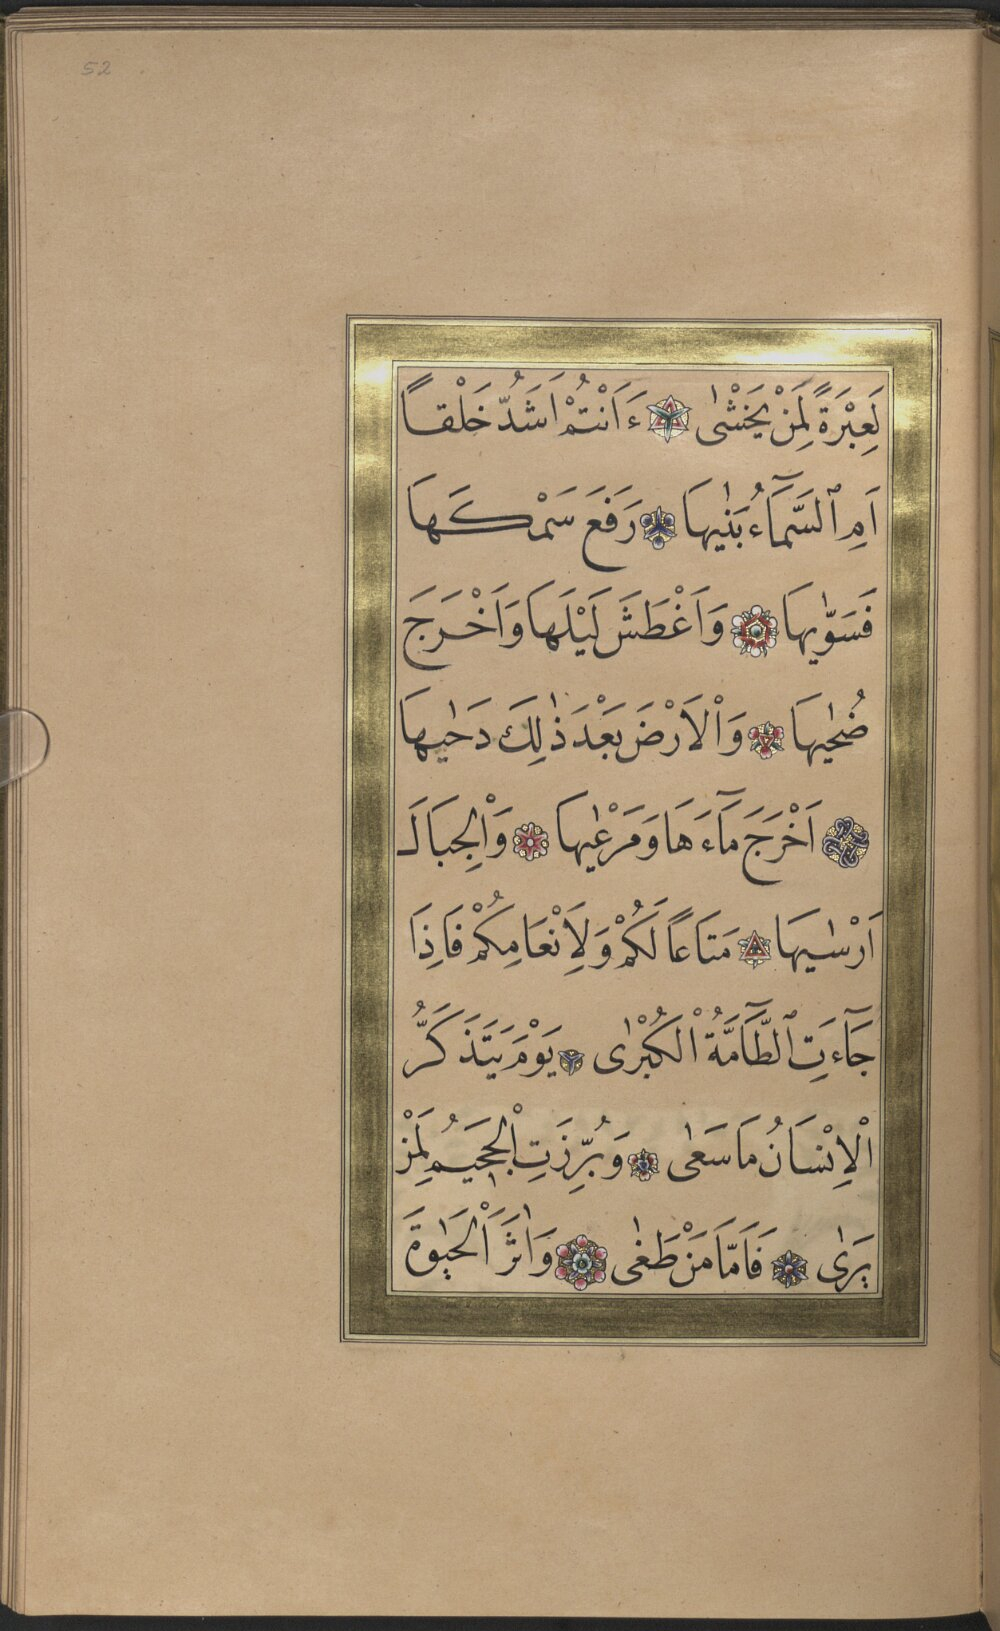 52
لَعِبْرَةً لِمَنْ يَخْشٰى ءَاَنْتُمْ اَشَدُّ خَلْقاً
اَمِ ٱلسَّمَٓاءُ بَنٰيهَا رَفَعَ سَمْكَهَا
فَسَوّٰيهَا وَاَغْطَشَ لَيْلَهَا وَاَخْرَجَ
ضُحٰيهَا وَاْلاَرْضَ بَعْدَ ذٰلِكَ دَحٰيهَا
اَخْرَجَ مَٓاءَهَا وَمَرْعٰيهَا وَاْلجِبَالَ
اَرْسٰيهَا مَتَاعاً لَكُمْ وَلِاَنْعَامِكُمْ فَاِذَا
جَٓاءَتِ ٱلطَّٓامَّةُ اْلكُبْرٰى يَوْمَ يَتَذَكَّرُ
اْلاِنْسَانُ مَا سَعٰى وَبُرِّزَتِ اْلجَحيمُ لِمَنْ
يَرٰى فَاَمَّا مَنْ طَغٰى وَاٰثَرَ اْلحَيٰوةَ